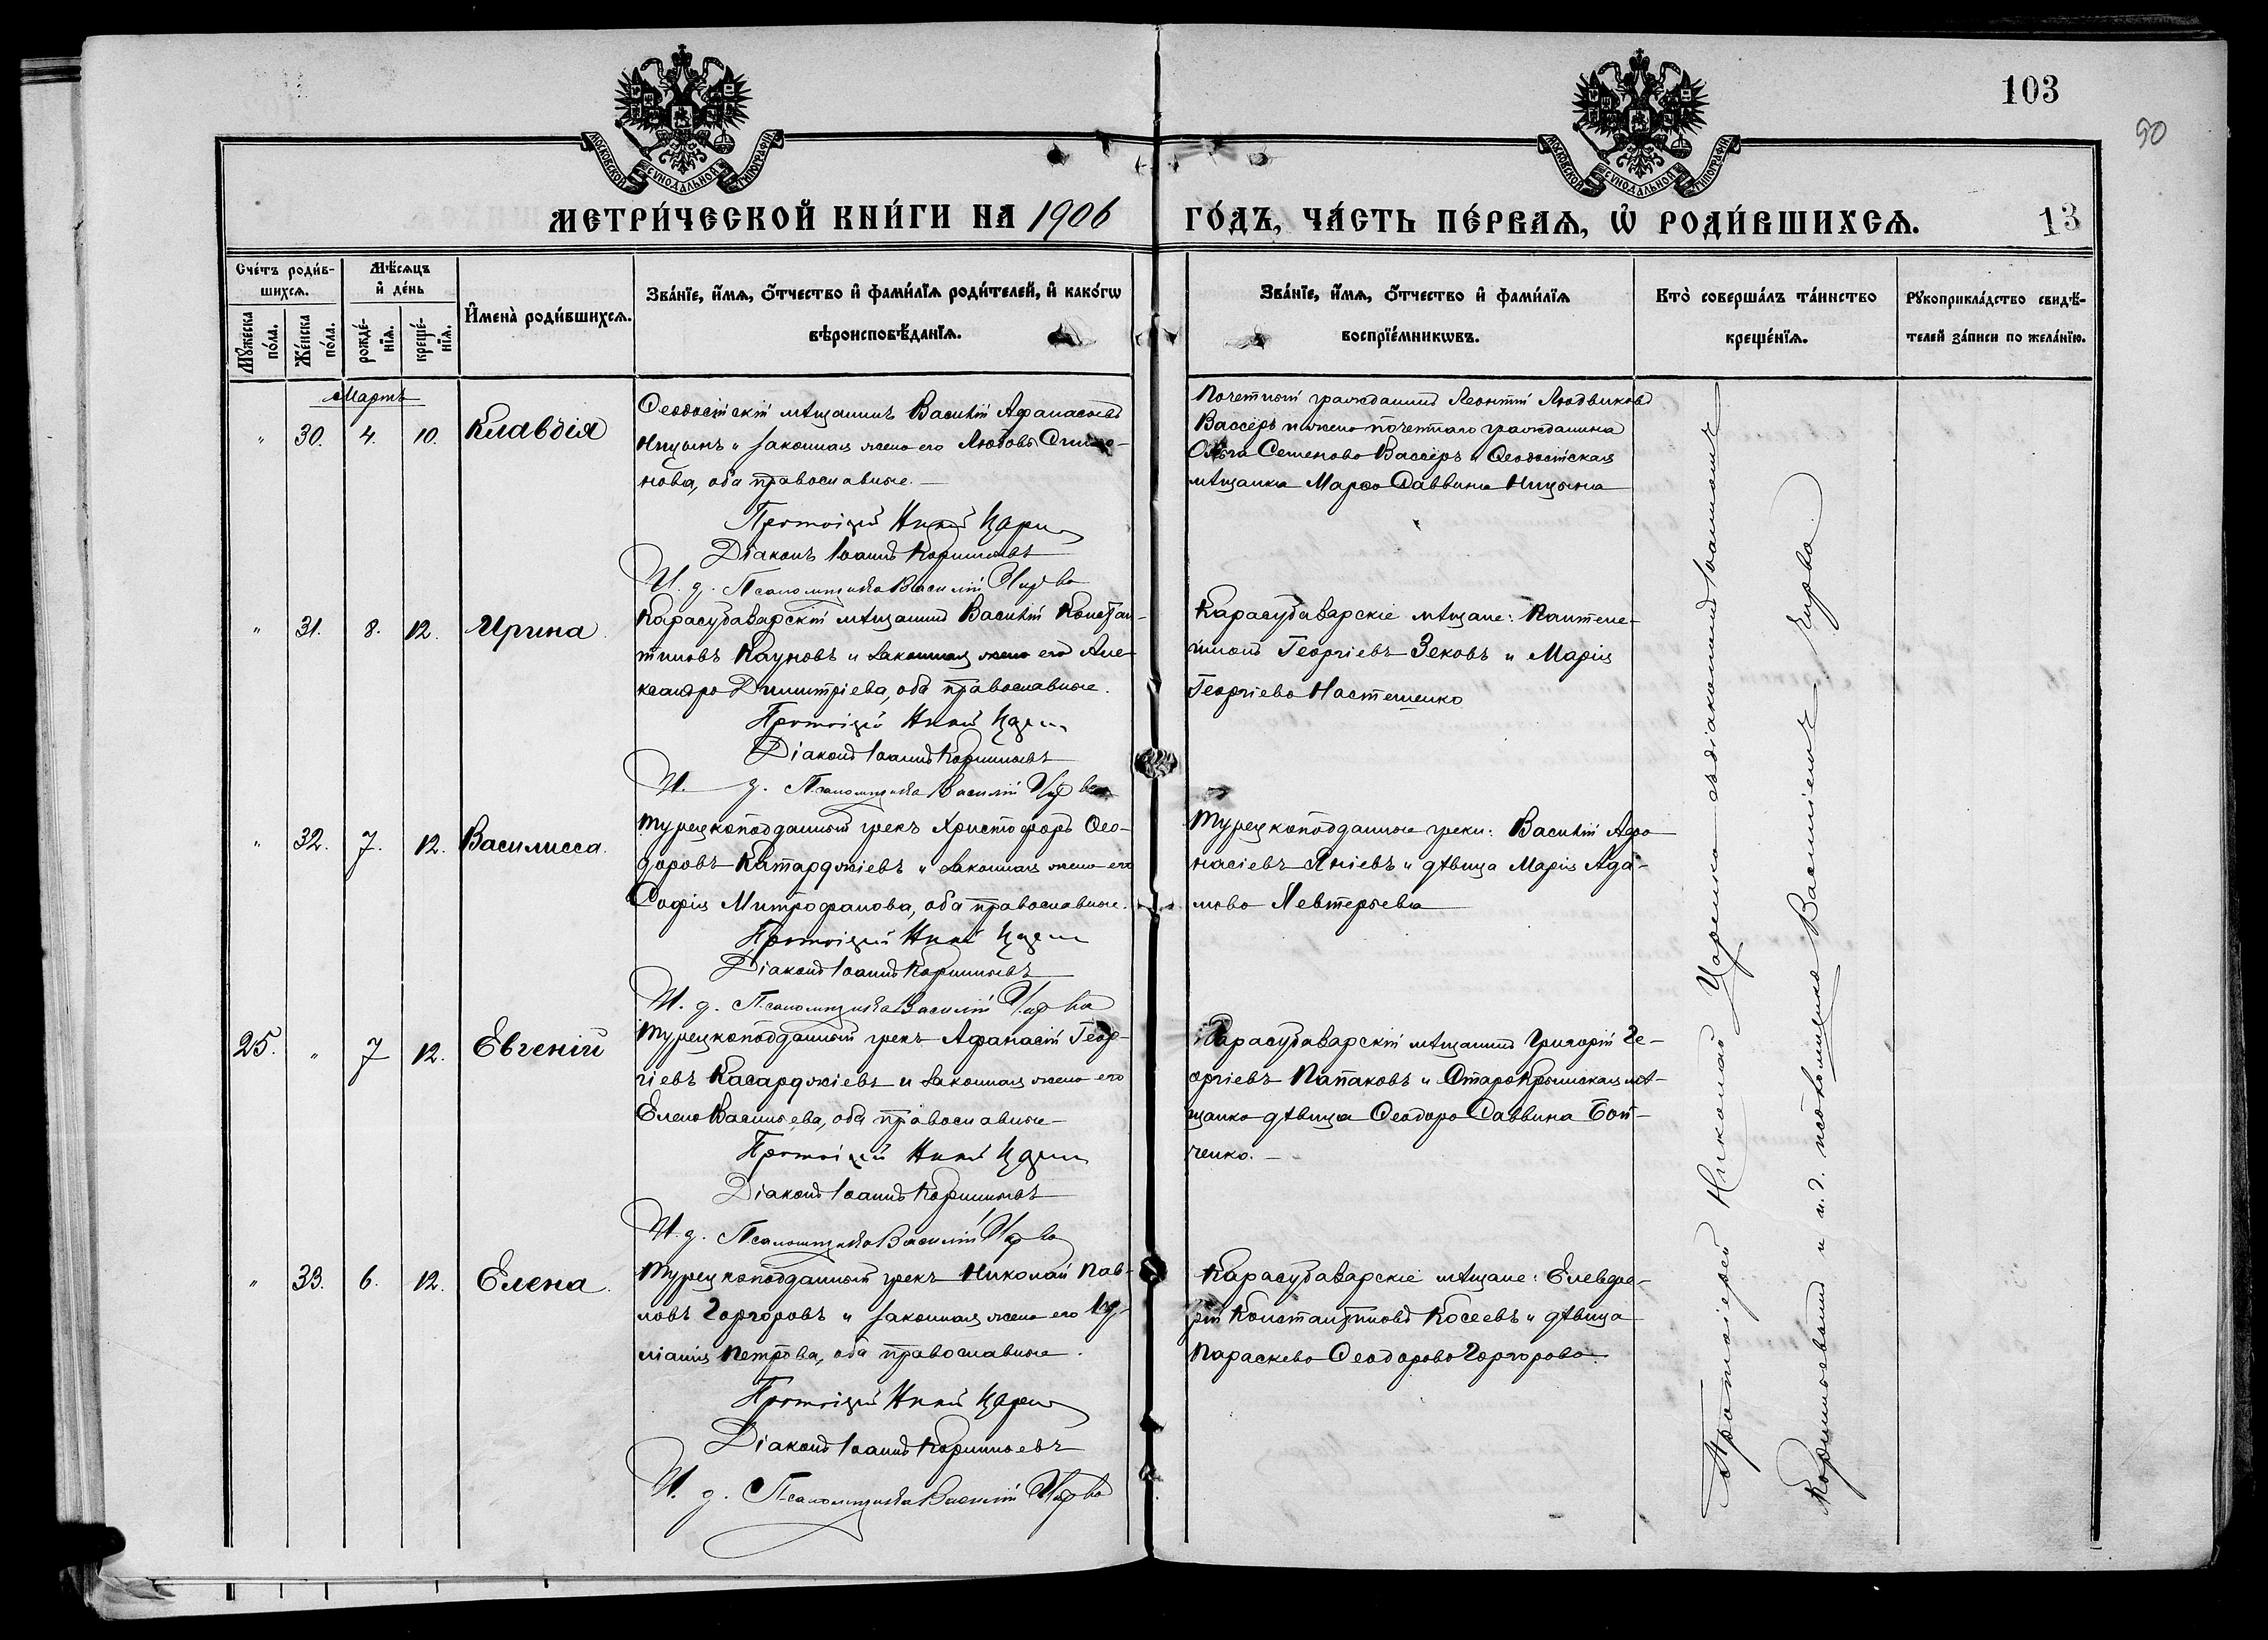 103
90
МОСКОВСКОЙ СѴНОДАЛЬНОЙ ТИПОГРАФІИ
МОСКОВСКОЙ СѴНОДАЛЬНОЙ ТИПОГРАФІИ
МЕТРИ́ЧЕСКОЙ КНИ́ГИ НА 1906 ГО́ДЪ, ЧА́СТЬ ПЕ́РВАѦ, Ѡ҆ РОДИ́ВШИХСѦ.
13
Сче́тъ роди́в-
шихсѧ.
Мꙋ́жеска по́ла.
Же́нска по́ла.
Мѣ́сѧцъ
и҆ де́нь
рожде́-
нїѧ.
креще́-
нїѧ.
И҆мена̀ роди́вшихсѧ.
Зва́нїе, и҆́мѧ, ѻ҆́тчество и҆ фами́лїѧ роди́телей, и҆ како́гѡ
вѣроисповѣ́данїѧ.
Зва́нїе, и҆́мѧ, ѻ҆́тчество и҆ фами́лїѧ
воспрїе́мникѡвъ.
Кто̀ соверша́лъ та́инство
креще́нїѧ.
Рꙋкоприкла́дство свидѣ́-
телей за́писи по жела́нїю.
Мартъ
" 30. 4. 10. Клавдія
Ѳеодосійскій мѣщанинъ Василій Аѳанасьевъ
Ницынъ и законная жена его Любовь
нова, оба православные.
Протоіерей Царенко
Діаконъ Іоаннъ Коршиньевъ
И. д. Псаломщика Василій
Почетный гражданинъ Леонтій Людвиковъ
Вассеръ и жена почетнаго гражданина
Ольга Семенова Вассеръ и Ѳеодосійская
мѣщанка Марѳа Саввина Ницына
" 31. 8. 12. Ирина
Карасубазарскій мѣщанинъ Василій Констан-
тиновъ Кауновъ и законная жена его Але-
ксандра Димитріева, оба православные.
Протоіерей Царенко
Діаконъ Іоаннъ Коршиньевъ
И. д. Псаломщика Василій
Карасубазарскіе мѣщане: Пантеле-
имонъ Георгіевъ Зековъ и Марія
Георгіева Настешенко
" 32. 7. 12. Василисса.
Турецкоподданный грекъ Христофоръ Ѳео-
доровъ Катарджіевъ и законная жена его
Софія Митрофанова, оба православные.
Протоіерей Царенко
Діаконъ Іоаннъ Коршиньевъ
И. д. Псаломщика Василій
Турецкоподданные греки: Василій Аѳа
насіевъ Яніевъ и дѣвица Марія Ада-
мова Левтерьева
25. " 7 12. Евгеній
Турецкоподданный грекъ Аѳанасій Геор-
гіевъ Касарджіевъ и законная жена его
Елена Васильева, оба православные
Протоіерей Царенко
Діаконъ Іоаннъ Коршиньевъ
И. д. Псаломщика Василій
Карасубазарскій мѣщанинъ Григорій Ге-
оргіевъ Папаковъ и Старокрымская мѣ-
щанка дѣвица Ѳеодора Саввина Бой-
ченко.
" 33. 6. 12. Елена.
Турецкоподданный грекъ Николай Пав-
ловъ Горгоровъ и законная жена его Іу-
ліанія Петрова, оба православные.
Протоіерей Царенко
Діаконъ Іоаннъ Коршиньевъ
И. д. Псаломщика Василій
Карасубазарскіе мѣщане: Елевфе-
рій Константиновъ Косеевъ и дѣвица
Параскева Ѳеодорова Горгорова.
Протоіерей Николай Царенко съ діакономъ Іоанномъ
Коршиньевымъ и и.д. псаломщика Василіемъ